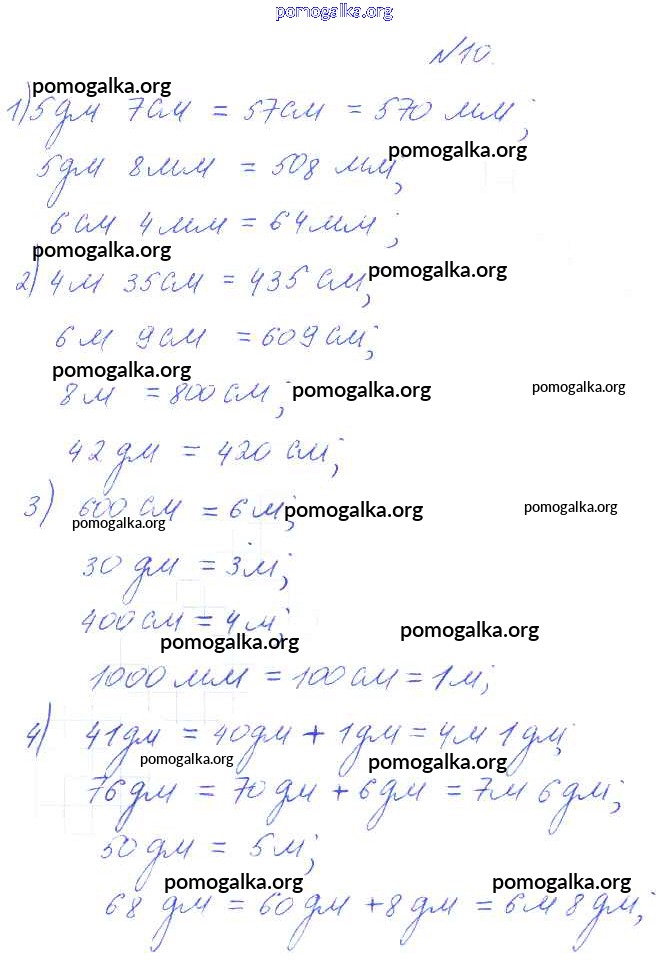 pomogalka.org
№10.
pomogalka.org
1) 5 дм 7 см = 57 см = 570 мм;
pomogalka.org
5 дм 8 мм = 508 мм;
6 см 4 мм = 64 мм;
pomogalka.org
pomogalka.org
2) 4 м 35 см = 435 см;
6 м 9 см = 609 см;
pomogalka.org
pomogalka.org
pomogalka.org
8 м = 800 см;
42 дм = 420 см;
3) 600 см = 6 м;
pomogalka.org
pomogalka.org
pomogalka.org
30 дм = 3 м;
400 см = 4 м;
pomogalka.org
pomogalka.org
1000 мм = 100 см = 1 м;
4) 41 дм = 40 дм + 1 дм = 4 м 1 дм;
pomogalka.org
pomogalka.org
76 дм = 70 дм + 6 дм = 7 м 6 дм;
50 дм = 5 м;
pomogalka.org
pomogalka.org
68 дм = 60 дм + 8 дм = 6 м 8 дм;